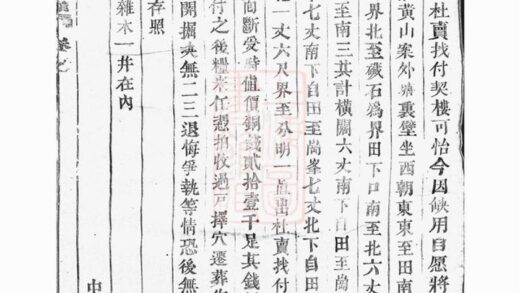 杜賣找付契樓可怡今因缺用自愿將
黄山案外塘裏壟坐西朝東東至田南
界北至礙石爲界田下口南至北六丈
至南三其計橫闊六丈南下自田至崗
七丈南下自田至崗峯七丈北下自田
一丈六尺界至分明一直出杜賣找付
向斷受時值價銅錢貳拾壹千足其錢
付之後糧來任憑扣收過戶擇穴遷葬
開掘決無二三退悔爭執等情恐後無
存照
雜木一幷在內
中